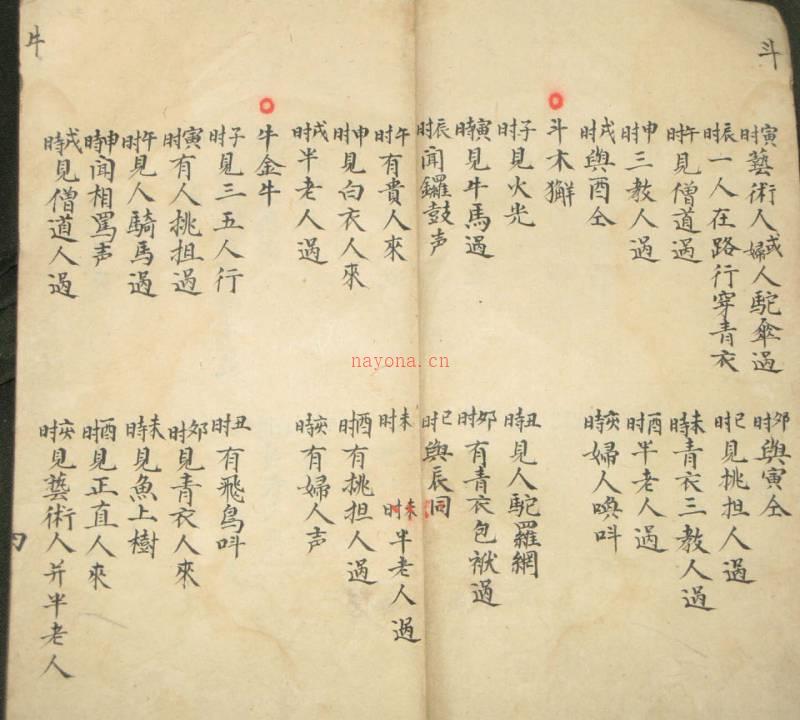 斗
寅时藝術人或婦人駝傘過
卯时與寅仝
辰时一人在路行穿青衣
巳时見挑担人過
午时見僧道過
未時青衣三教人過
申时三教人過
酉时半老人過
戌时與酉仝
亥時婦人喚呌
斗木獬
子时見火光
丑時見人駝羅網
寅時見牛馬過
卯时有青衣包袱過
辰时聞鑼鼓声
巳时與辰同
午时有貴人來
未时
未时半老人過
申时見白衣人來
酉时有挑担人過
戌时半老人過
亥時有婦人声
牛金牛
子时見三五人行
丑时有飛鳥呌
寅时有人挑担過
卯时見青衣人來
午时見人騎馬過
未時見魚上樹
申時聞相罵声
酉时見正直人來
戌時見僧道人過
亥时見藝術人并半老人
牛
nayona.cn